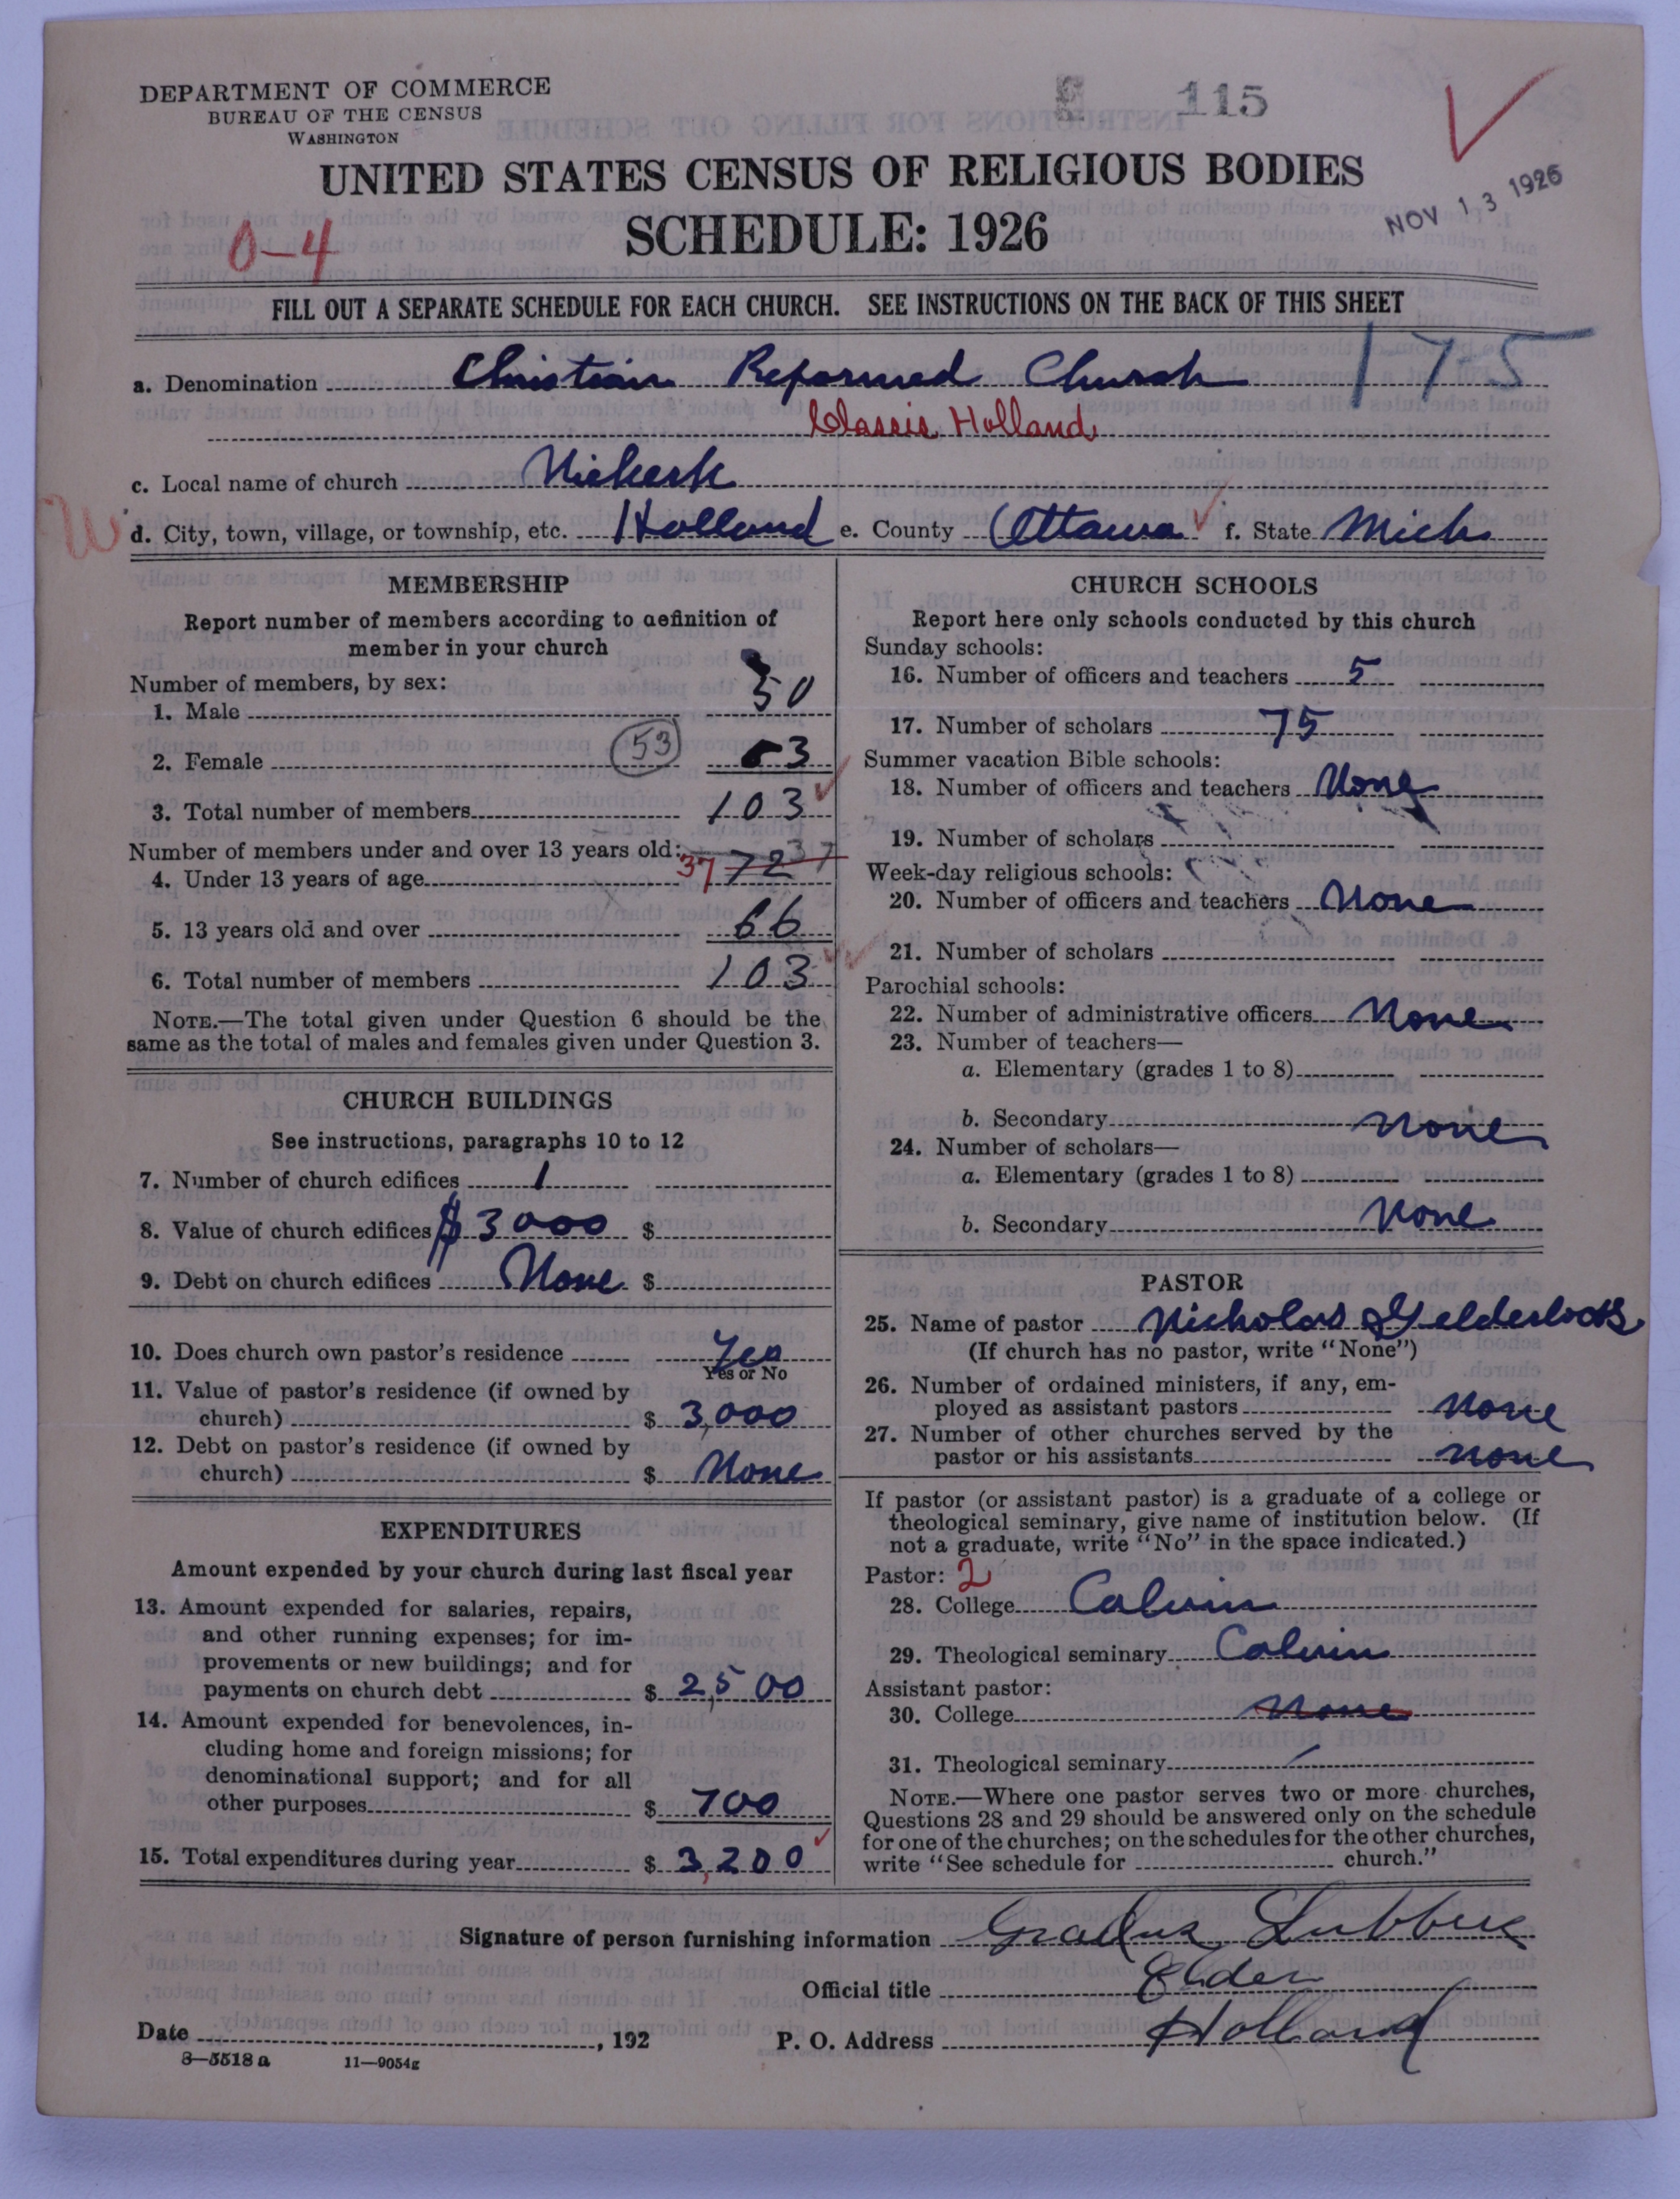 DEPARTMENT OF COMMERCE
BUREAU OF THE CENSUS
WASHINGTON
115
UNITED STATES CENSUS OF RELIGIOUS BODIES
SCHEDULE: 1926
NOV 13 1926
0-4
FILL OUT A SEPARATE SCHEDULE FOR EACH CHURCH. SEE INSTRUCTIONS ON THE BACK OF THIS SHEET
a. Denomination Christian Reformed Church 175
Classis Holland
c. Local name of church Niekerk
W d. City, town, village, or township, etc. Holland e. County Ottawa f. State Mich
MEMBERSHIP
Report number of members according to definition of
member in your church
Number of members, by sex:
1. Male 50
2. Female 53 53
3. Total number of members 103
Number of members under and over 13 years old:
4. Under 13 years of age 37 72 37
5. 13 years old and over 66
6. Total number of members 103
NOTE.—The total given under Question 6 should be the
same as the total of males and females given under Question 3.
CHURCH BUILDINGS
See instructions, paragraphs 10 to 12
7. Number of church edifices 1
8. Value of church edifices $3000 $
9. Debt on church edifices None $
10. Does church own pastor's residence Yes
Yes or No
11. Value of pastor's residence (if owned by
church) $ 3,000
12. Debt on pastor's residence (if owned by
church) $ None
EXPENDITURES
Amount expended by your church during last fiscal year
13. Amount expended for salaries, repairs,
and other running expenses; for im-
provements or new buildings; and for
payments on church debt $ 2,500
14. Amount expended for benevolences, in-
cluding home and foreign missions; for
denominational support; and for all
other purposes $ 700
15. Total expenditures during year $ 3,200
CHURCH SCHOOLS
Report here only schools conducted by this church
Sunday schools:
16. Number of officers and teachers 5
17. Number of scholars 75
Summer vacation Bible schools:
18. Number of officers and teachers None
19. Number of scholars
Week-day religious schools:
20. Number of officers and teachers None
21. Number of scholars
Parochial schools:
22. Number of administrative officers None
23. Number of teachers—
a. Elementary (grades 1 to 8)
b. Secondary None
24. Number of scholars—
a. Elementary (grades 1 to 8)
b. Secondary None
PASTOR
25. Name of pastor Nicholas Gelderloos
(If church has no pastor, write "None")
26. Number of ordained ministers, if any, em-
ployed as assistant pastors None
27. Number of other churches served by the
pastor or his assistants None
If pastor (or assistant pastor) is a graduate of a college or
theological seminary, give name of institution below. (If
not a graduate, write "No" in the space indicated.)
Pastor: 2
28. College Calvin
29. Theological seminary Calvin
Assistant pastor:
30. College None
31. Theological seminary
NOTE.—Where one pastor serves two or more churches,
Questions 28 and 29 should be answered only on the schedule
for one of the churches; on the schedules for the other churches,
write "See schedule for church."
Signature of person furnishing information Gradus Lubbers
Official title Elder
Date , 192 P. O. Address Holland
8—5518 a 11—9054g